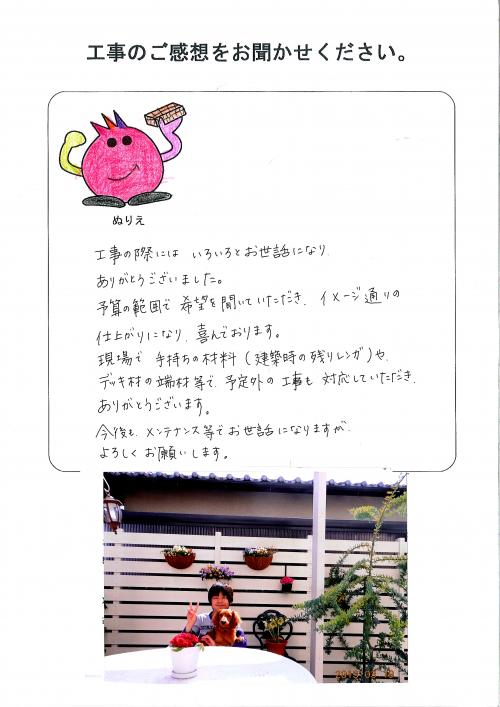 工事のご感想をお聞かせください。
ぬりえ
工事の際には いろいろとお世話になり
ありがとうございました。
予算の範囲で 希望を聞いていただき、イメージ通りの
仕上がりになり、喜んでおります。
現場で 手持ちの材料(建築時の残りレンガ)や、
デッキ材の端材等で、予定外の 工事も 対応していただき、
ありがとうございます。
今後も、メンテナンス等でお世話になりますが、
よろしく お願いします。